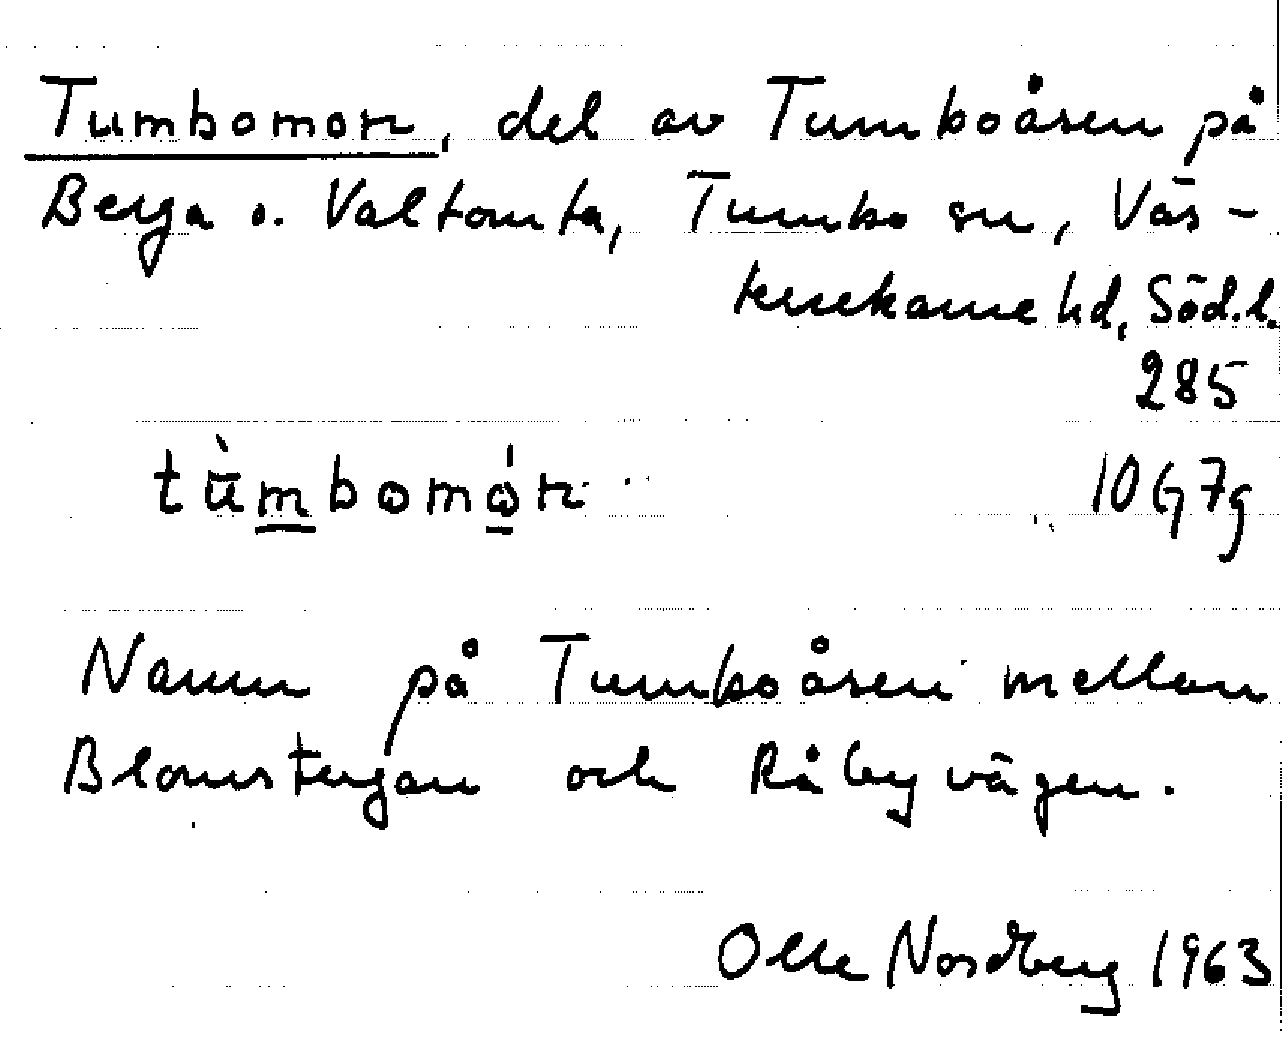 Tumbomon, del av Tumboåsen på
Berga o. Valtomta, Tumbo sn, Väs-
terrekarne hd, Söd.l.
285
tùmbomo̱n 10G7g
Namn på Tumboåsen mellan
Blomstergan och Råbyvägen.
Olle Nordberg 1963